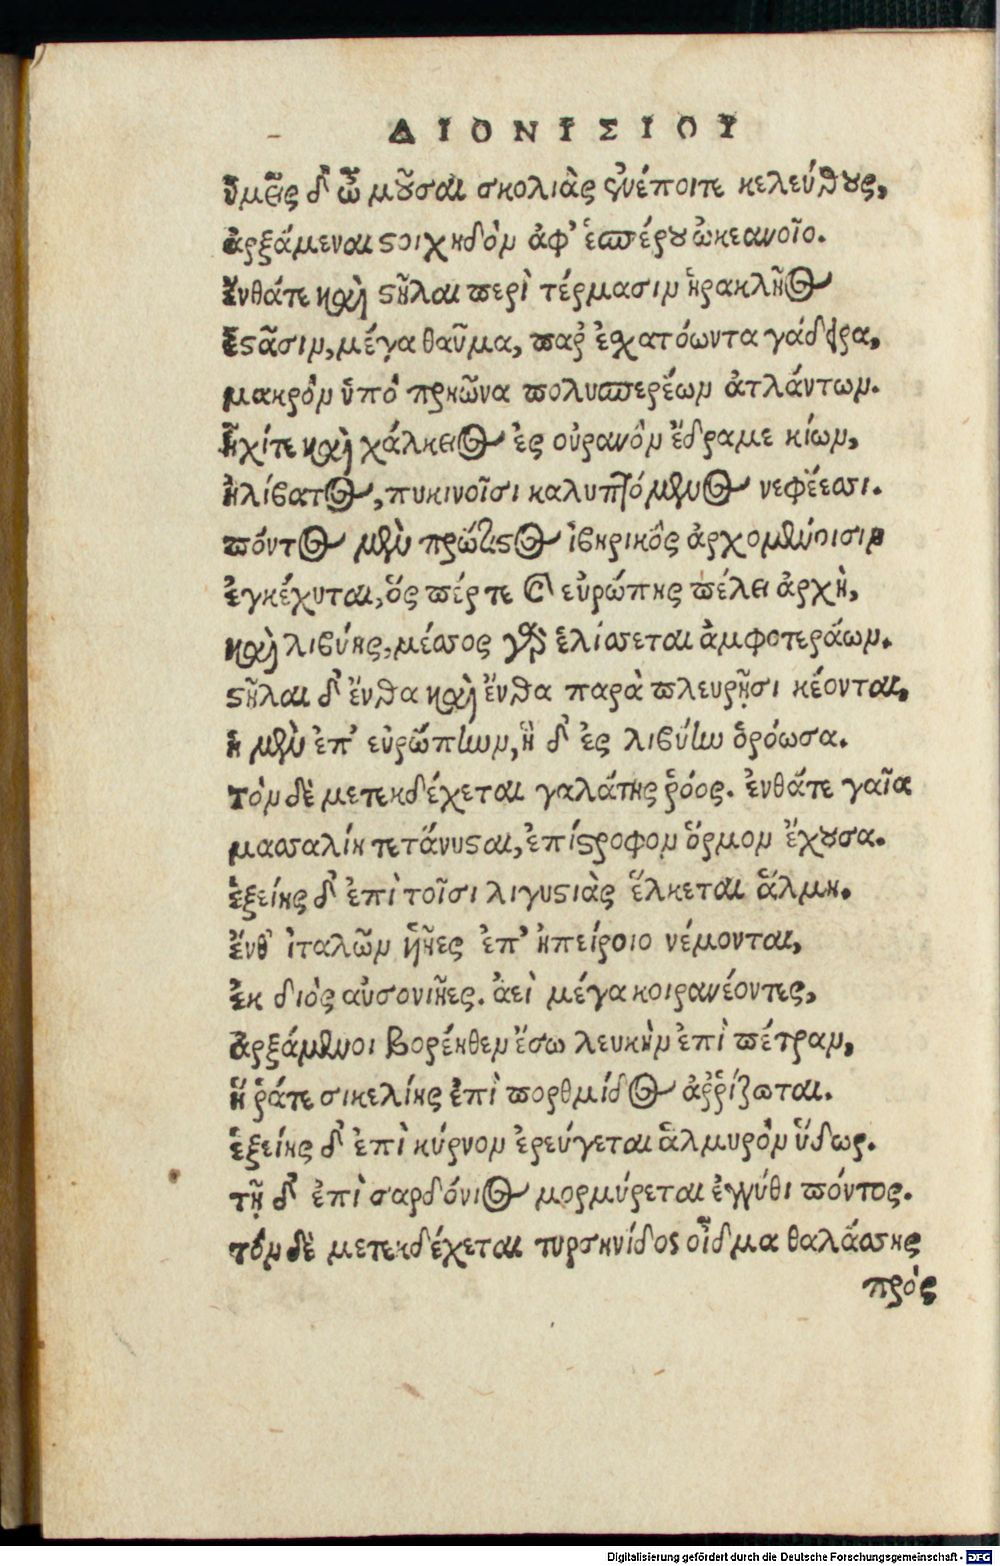 ΔΙΟΝΥΣΙΟΥ
ὑμεῖς δ' ὦ μοῦσαι σκολιὰς ἐνέποιτε κελεύθους,
ἀρξάμεναι στοιχηδὸν ἀφ' ἑσπέρου ὠκεανοῖο.
ἔνθάτε καὶ στῆλαι περὶ τέρμασιν ἡρακλῆος
ἑστᾶσιν, μέγα θαῦμα, παρ' ἐσχατόωντα γάδειρα,
μακρὸν ὑπὸ πρηῶνα πολυσπερέων ἀτλάντων.
ἧχίτε καὶ χάλκειος ἐς οὐρανὸν ἔδραμε κίων,
ἠλίβατος, πυκινοῖσι καλυπτόμενος νεφέεσσι.
πόντος μὲν πρώτιστος ἰβηρικὸς ἀρχομένοισιν
ἐγκέχυται, ὅς πέρ τε καὶ εὐρώπης πέλει ἀρχὴ,
καὶ λιβύης, μέσσος γὰρ ἑλίσσεται ἀμφοτεράων.
στῆλαι δ' ἔνθα καὶ ἔνθα παρὰ πλευρῇσι κέονται,
ἡ μὲν ἐπ' εὐρώπην, ἡ δ' ἐς λιβύην ὁρόωσα.
τὸν δὲ μετεκδέχεται γαλάτης ῥόος. ἐνθάτε γαῖα
μασσαλίη τετάνυσαι, ἐπίστροφον ὅρμον ἔχουσα.
ἑξείης δ' ἐπὶ τοῖσι λιγυστιὰς ἕλκεται ἅλμη.
ἔνθ' ἰταλῶν ἡῆες ἐπ' ἠπείροιο νέμονται,
ἐκ διὸς αὐσονιῆες. ἀεὶ μέγα κοιρανέοντες,
ἀρξάμενοι βορέηθεν ἔσω λευκὴν ἐπὶ πέτραν,
ἥ ῥάτε σικελίης ἐπὶ πορθμίδος ἀρρίζωται.
ἑξείης δ' ἐπὶ κύρνον ἐρεύγεται ἁλμυρὸν ὕδωρ.
τῇ δ' ἐπὶ σαρδόνιος μορμύρεται ἐγγύθι πόντος.
τὸν δὲ μετεκδέχεται τυρσηνίδος οἶδμα θαλάσσης
πρὸς
Digitalisierung gefördert durch die Deutsche Forschungsgemeinschaft - DFG